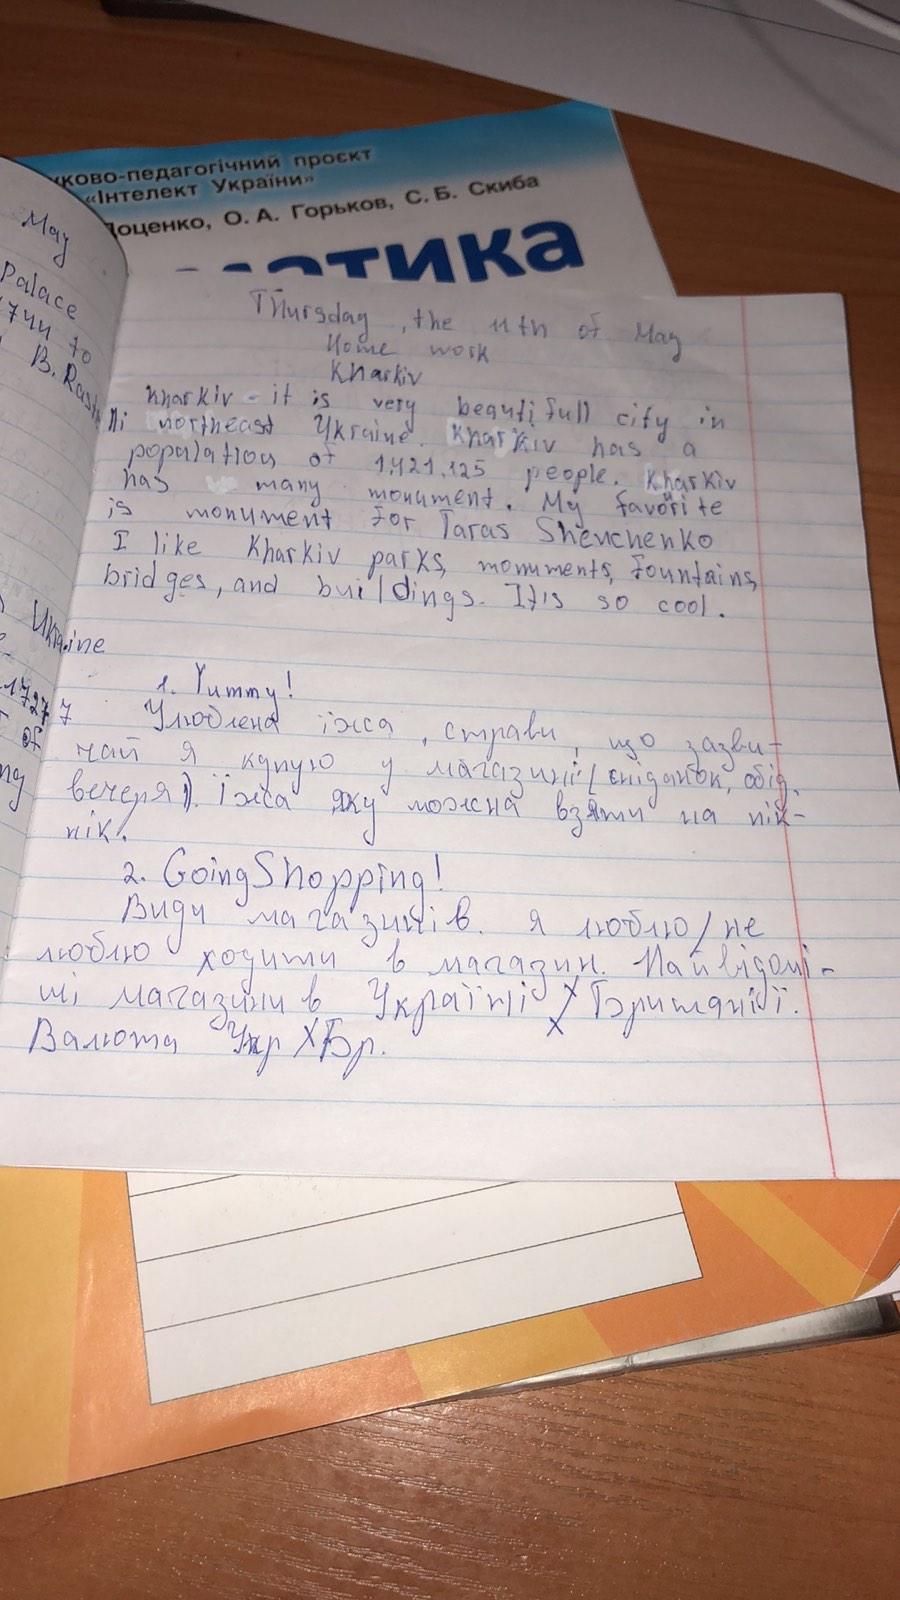 уково-педагогічний проєкт
«Інтелект України»
Доценко, О. А. Горьков, С. Б. Скиба
матика
May
Palace
1744 to
B. Rast
Ukraine
1727
of
ng
Thursday, the 11th of May
Home work
Kharkiv
Kharkiv - it is very beautifull city in
northeast Ukraine. Kharkiv has a
population of 1.421.125 people. Kharkiv
has many monument. My favorite
is monument for Taras Shevchenko
I like Kharkiv parks, monuments, fountains,
bridges, and buildings. It is so cool.
1. Yummy!
Улюблена їжа, страви, що зазви-
чай я купую у магазині (сніданок, обід,
вечеря). Їжа яку можна взяти на пік-
нік.
2. Going Shopping!
Види магазинів. Я люблю/не
люблю ходити в магазин. Найвідомі-
ші магазини в Україні / Британії.
Валюта Укр Х Бр.